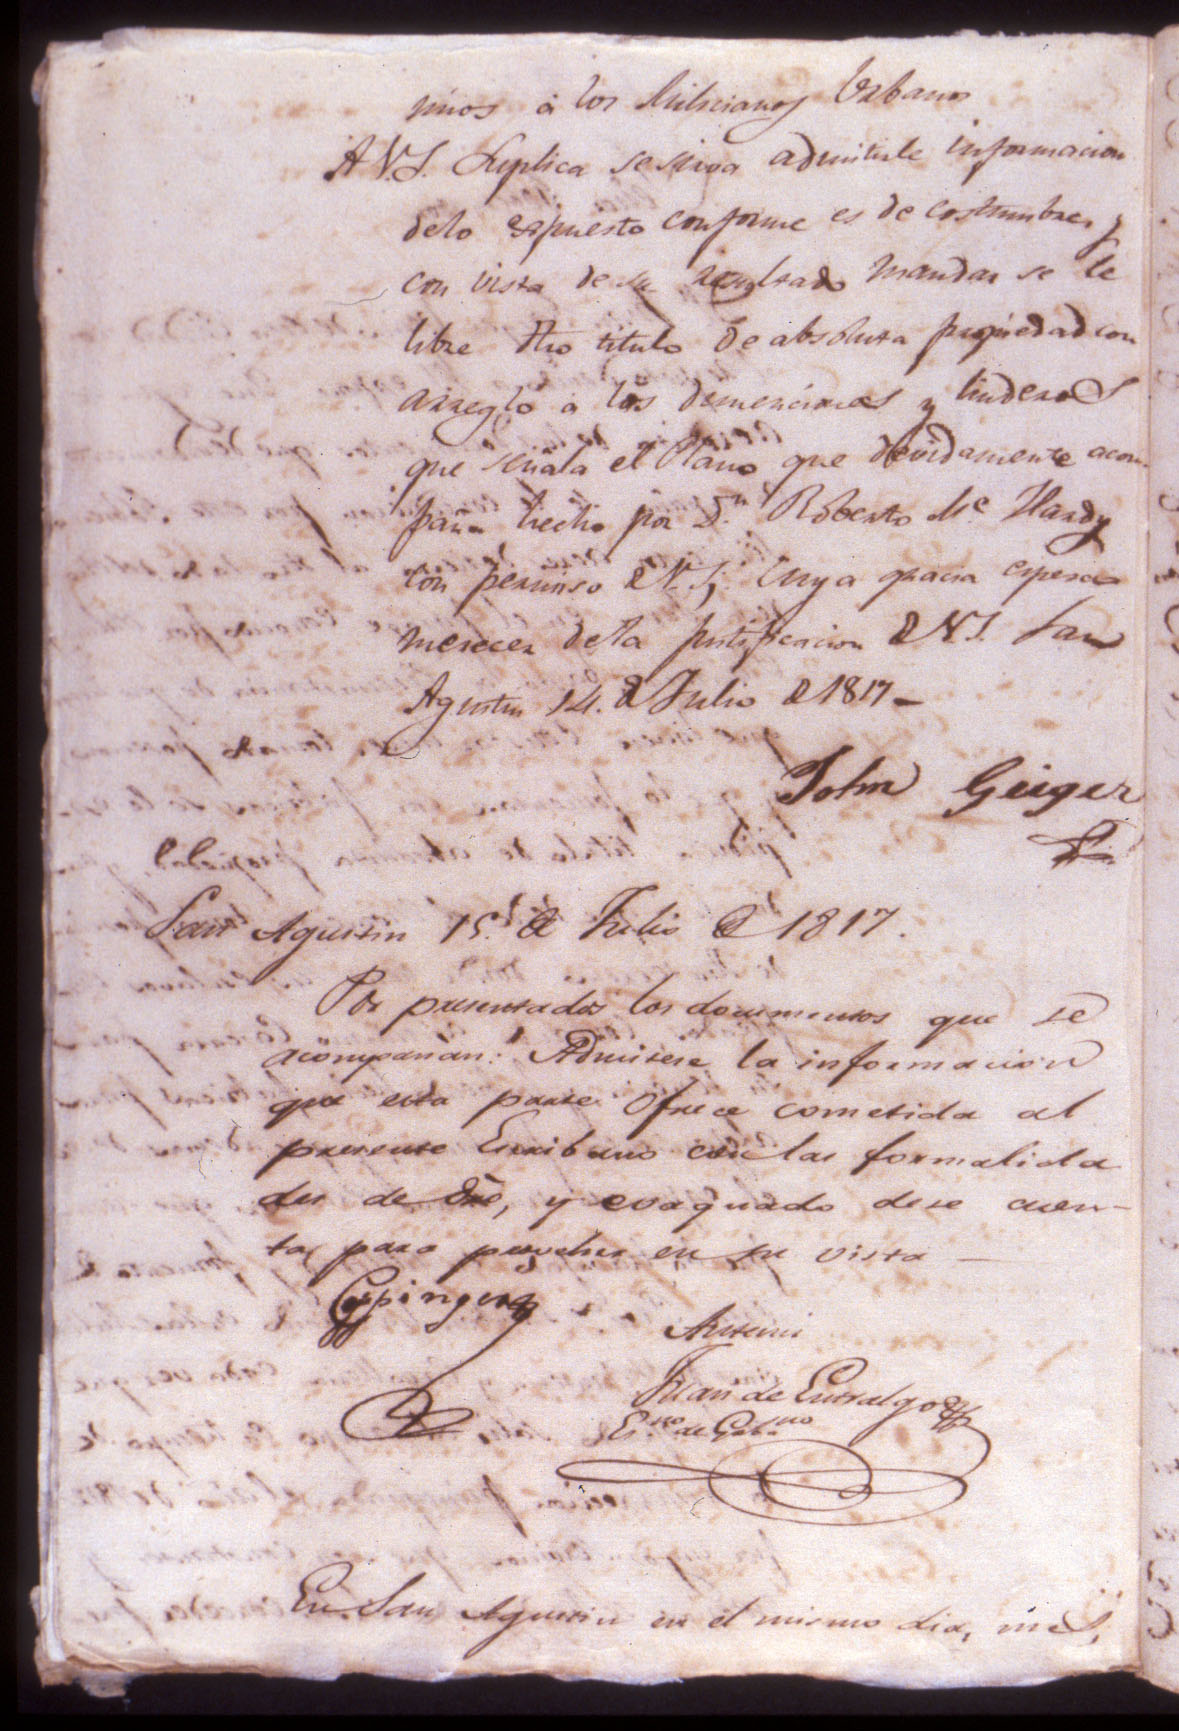 nuos á los Milicianos Urbanos
A V.S. Suplica se sirva admitirle informacion
delo expuesto conforme es de costumbre, y
con vista de su resultado mandar se le
libre dho titulo de absoluta propiedad con
arreglo á las dimenciones y linderos
que señala el Plano que devidamente acom-
paña hecho por Dn. Roberto Mc Hardy
con permiso de V.S, cuya gracia espera
merecer dela justificacion de V.S. San
Agustin 14. de Julio de 1817-
John Geiger
San Agustin 15. de Julio de 1817.
Por presentados los documentos que se
acompañan: Admitese la informacion
que esta parte ofrece cometida al
presente Escribano con las formalida
des de dro, y evaquado dese cuen-
ta para proveher en su vista
Coppinger
Antemi
Juan de Entralgo
Esno. de Gobno.
En San Agustin en el mismo dia, mes,